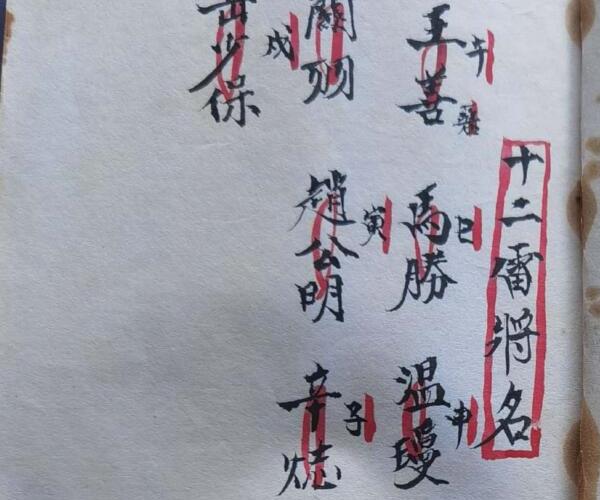 十二雷将名
午
王善
巳
馬勝
申
温瓊
戌
關羽
寅
趙公明
子
辛
岳少保